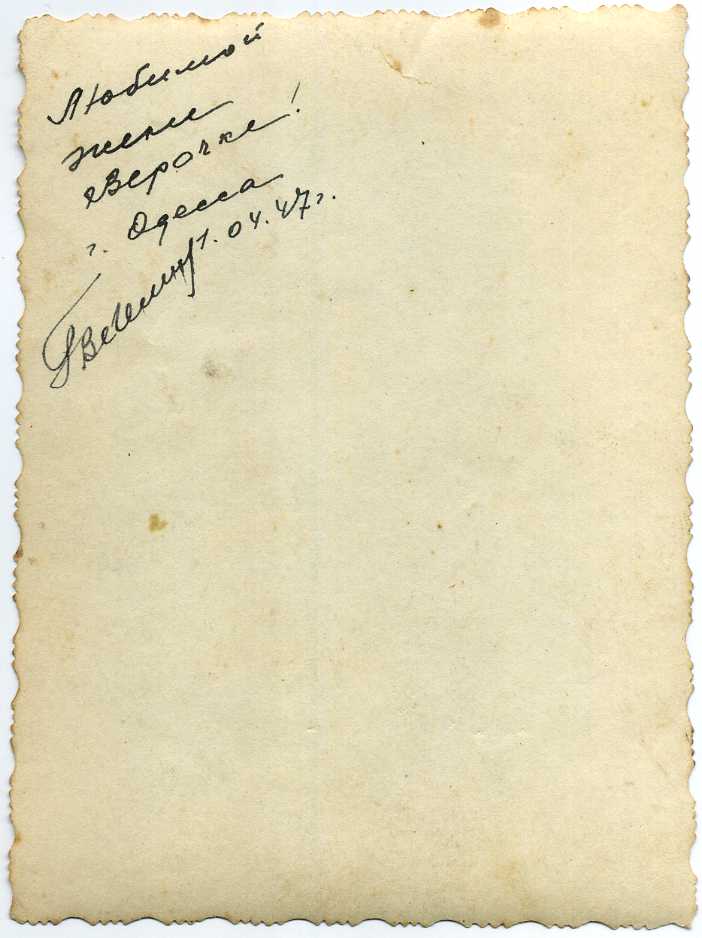 Любимой
жене
Верочке!
г. Одесса
1.04.47г.